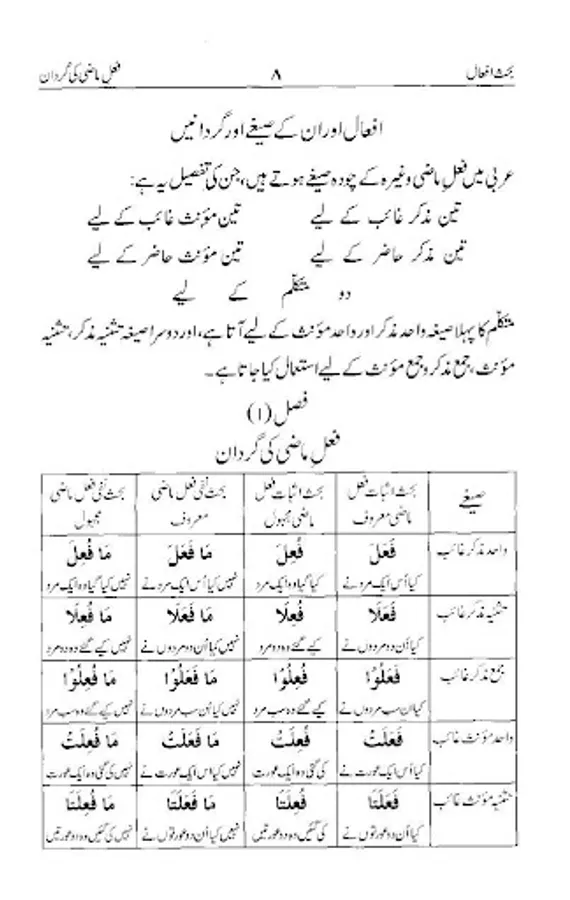 بحث افعال ۸ فعل ماضی کی گردان
افعال اور ان کے صیغے اور گردانیں
عربی میں فعل ماضی وغیرہ کے چودہ صیغے ہوتے ہیں، جن کی تفصیل یہ ہے:
تین مذکر غائب کے لیے تین مؤنث غائب کے لیے
تین مذکر حاضر کے لیے تین مؤنث حاضر کے لیے
دو متکلم کے لیے
متکلّم کا پہلا صیغہ واحد مذکر اور واحد مؤنث کے لیے آتا ہے، اور دوسرا صیغہ تثنیہ مذکر، تثنیہ
مؤنث، جمع مذکر و جمع مؤنث کے لیے استعمال کیا جاتا ہے۔
فصل (۱)
فعلِ ماضی کی گردان
صیغے بحث اثبات فعل بحث اثبات فعل بحث نفی فعل ماضی بحث نفی فعل ماضی
ماضی معروف ماضی مجہول معروف مجہول
واحد مذکر غائب فَعَلَ فُعِلَ مَا فَعَلَ مَا فُعِلَ
کیا اُس ایک مرد نے کیا گیا وہ ایک مرد نہیں کیا اُس ایک مرد نے نہیں کیا گیا وہ ایک مرد
تثنیہ مذکر غائب فَعَلَا فُعِلَا مَا فَعَلَا مَا فُعِلَا
کیا اُن دو مردوں نے کیے گئے وہ دو مرد نہیں کیا اُن دو مردوں نے نہیں کیے گئے وہ دو مرد
جمع مذکر غائب فَعَلُوْا فُعِلُوْا مَا فَعَلُوْا مَا فُعِلُوْا
کیا ان سب مردوں نے کیے گئے وہ سب مرد نہیں کیا اُن سب مردوں نے نہیں کیے گئے وہ سب مرد
واحد مؤنث غائب فَعَلَتْ فُعِلَتْ مَا فَعَلَتْ مَا فُعِلَتْ
کیا اُس ایک عورت نے کی گئی وہ ایک عورت نہیں کیا اس ایک عورت نے نہیں کی گئی وہ ایک عورت
تثنیہ مؤنث غائب فَعَلَتَا فُعِلَتَا مَا فَعَلَتَا مَا فُعِلَتَا
کیا اُن دو عورتوں نے کی گئیں وہ دو عورتیں نہیں کیا اُن دو عورتوں نے نہیں کی گئیں وہ دو عورتیں